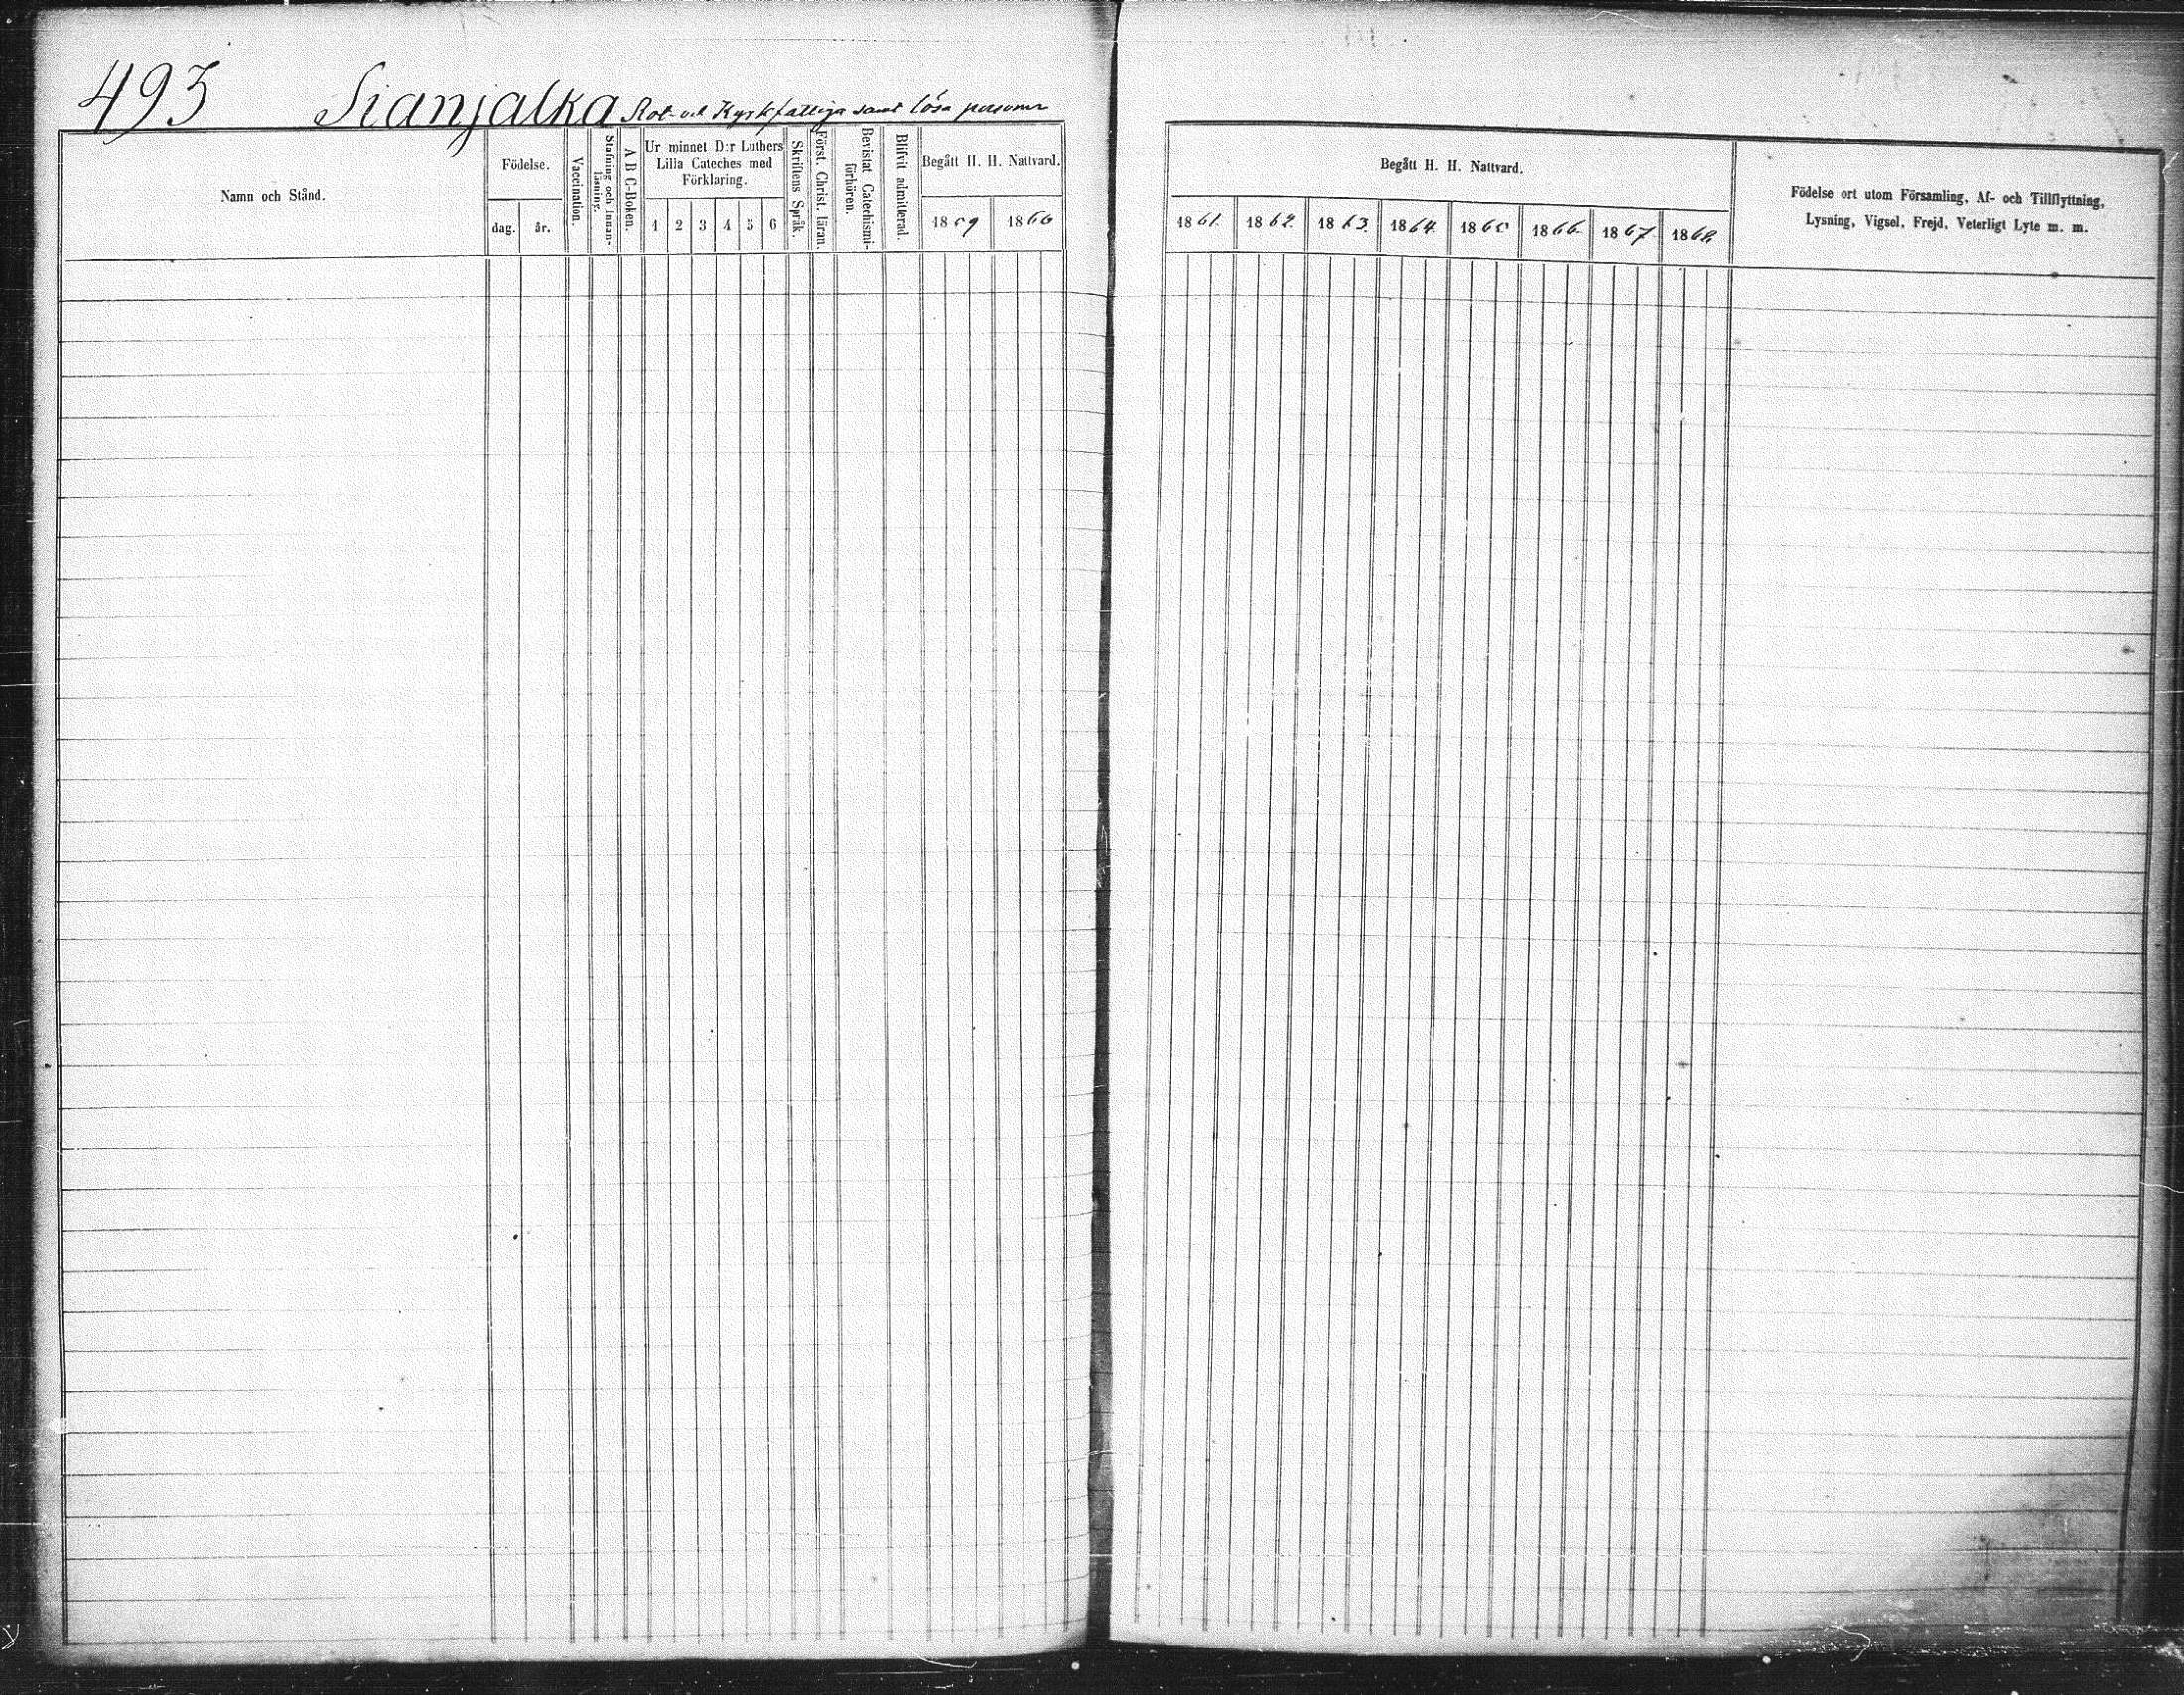 493 Sianjalka Rot- och Kyrkfattiga samt lösa personer
Namn och Stånd.
Födelse.
dag. år.
Vaccination.
Stafning och Innan-
läsning.
A B C-Boken.
Ur minnet D:r Luthers
Lilla Cateches med
Förklaring.
1 2 3 4 5 6
Skriftens Språk.
Först. Christ. läran.
Bevistat Catechismi-
förhören.
Blifvit admitterad.
Begått H. H. Nattvard.
1859 1860
Begått H. H. Nattvard.
1861. 1862. 1863. 1864. 1865 1866. 1867. 1868.
Födelse ort utom Församling, Af- och Tillflyttning,
Lysning, Vigsel, Frejd, Veterligt Lyte m. m.